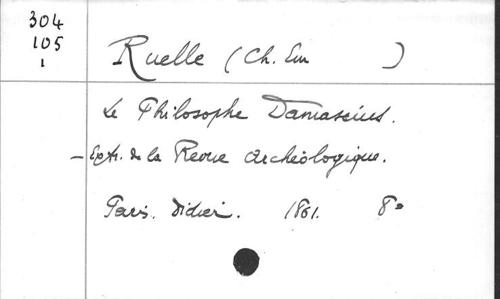 304
105
1
Ruelle (Ch. Em )
Le Philosophe Damascius.
— Extr. de la Revue archéologique.
Paris. Didier. 1861. 8°